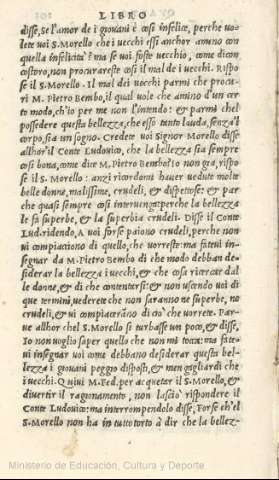 LIBRO
disse, Se l'amor de i giovani è cosi infelice, perche vo-
lete voi S. Morello che i vecchi essi anchor amino con
quella infelicità? ma se voi foste vecchio, come dicon
costoro, non procurareste cosi il mal de i vecchi. Rispo
se il S. Morello. Il mal dei vecchi parmi che procu-
ri M. Pietro Bembo, il qual vole che amino d'un cer
to modo, ch'io per me non l'intendo: & parmi che'l
possedere questa bellezza, che esso tanto lauda, senza'l
corpo, sia un sogno. Credete voi Signor Morello disse
allhor'il Conte Ludovico, che la bellezza sia sempre
cosi bona, come dice M. Pietro Bembo? Io non gia, rispo
se il S. Morello: anzi ricordomi haver vedute molte
belle donne, malissime, crudeli, & dispettose: & par
che quasi sempre cosi intervenga: perche la bellezza
le fa superbe, & la superbia crudeli. Disse il Conte
Lud. ridendo, A voi forse paiono crudeli, perche non
vi compiacciono di quello, che vorreste: ma fatevi inse-
gnar da M. Pietro Bembo di che modo debban de-
siderar la bellezza i vecchi, & che cosa ricercar dal
le donne, & di che contentarsi: & non uscendo voi di
que termini, vederete che non saranno ne superbe, ne
crudeli, & vi compiaceràno di ciò che vorrete. Par-
ve allhor che'l S. Morello si turbasse un poco, & disse,
Io non voglio saper quello che non mi tocca: ma fate-
vi insegnar voi come debbano desiderar questa bel-
lezza i giovani peggio disposti, & men gagliardi che
i vecchi. Quivi M. Fed. per acquetar il S. Morello, &
divertir il ragionamento, non lasciò rispondere il
Conte Ludovico: ma interrompendolo disse, Forse ch'el
S. Morello non ha in tutto torto à dir che la bellez-
Ministerio de Educación, Cultura y Deporte